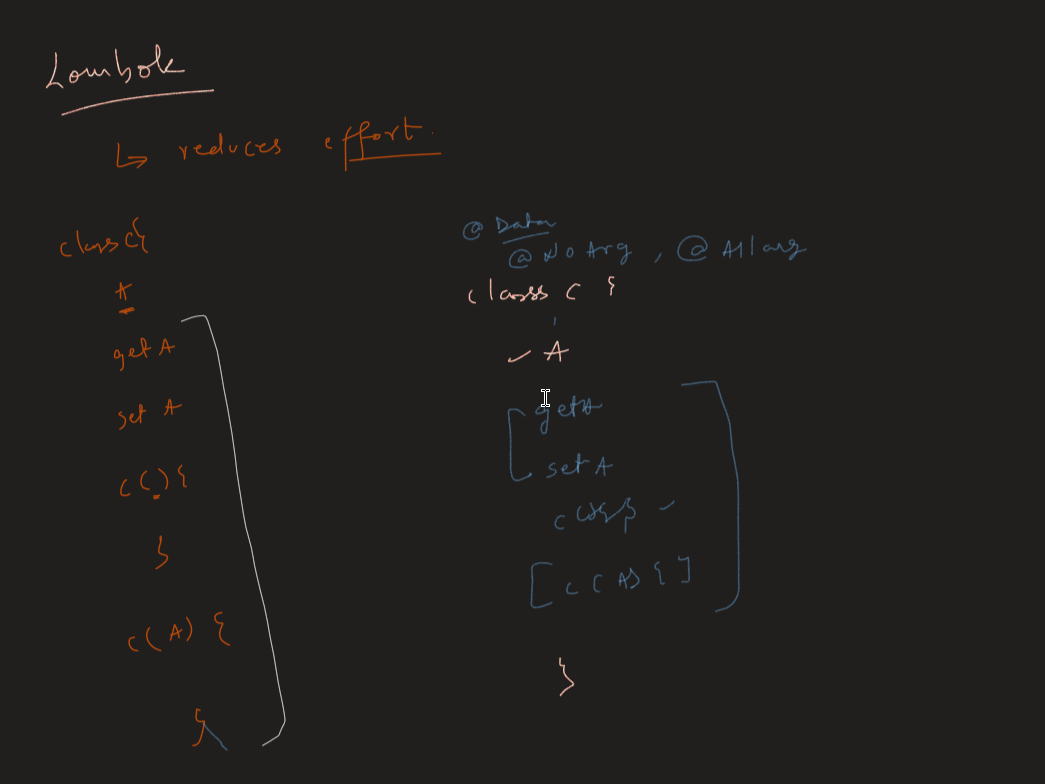 Lombok
↳ reduces effort.
class C{
A
get A
set A
C ( ) {
}
C ( A ) {
}
@ Data
@ No Arg , @ All arg
class C {
✓ A
getA
set A
C ( ) { } ✓
[ C ( A ) { ]
}